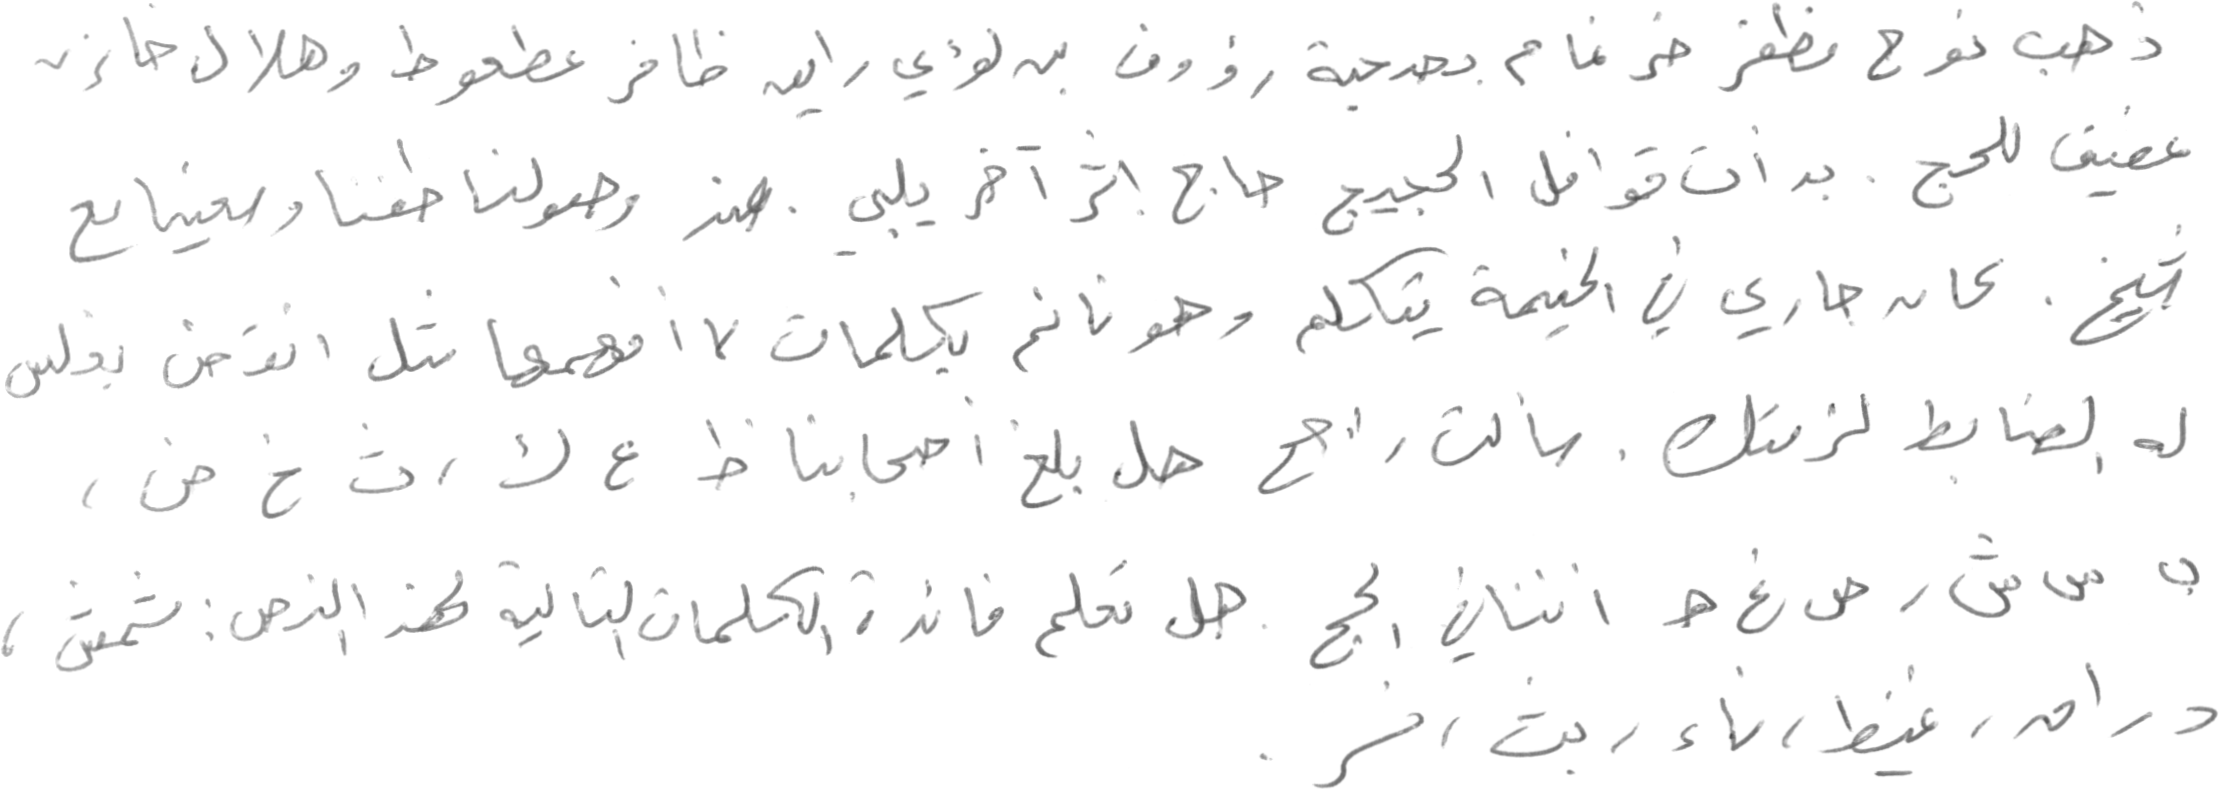 ذهب نوح مظفر ضرغام بصحبة رؤوف بن لؤي رايق ظافر عطعوط وهلال خازن
عفيف للحج . بدأت قوافل الحجيج حاج إثر آخر يلبي . عند وصولنا طفنا وسعينا مع
شيخ . كان جاري في الخيمة يتكلم وهو نائم بكلمات لا أفهمها مثل انقض بغلس
له الضابط لزمتك . سألت راجح هل بلغ أصحابنا ظ ع ك ، ث خ ض ،
ب س ش ، ص غ ط اثنائي الحج . هل تعلم فائدة الكلمات التالية لهذا النص : شمش ،
دراق ، غيظ ، ناء ، بث ، خر .